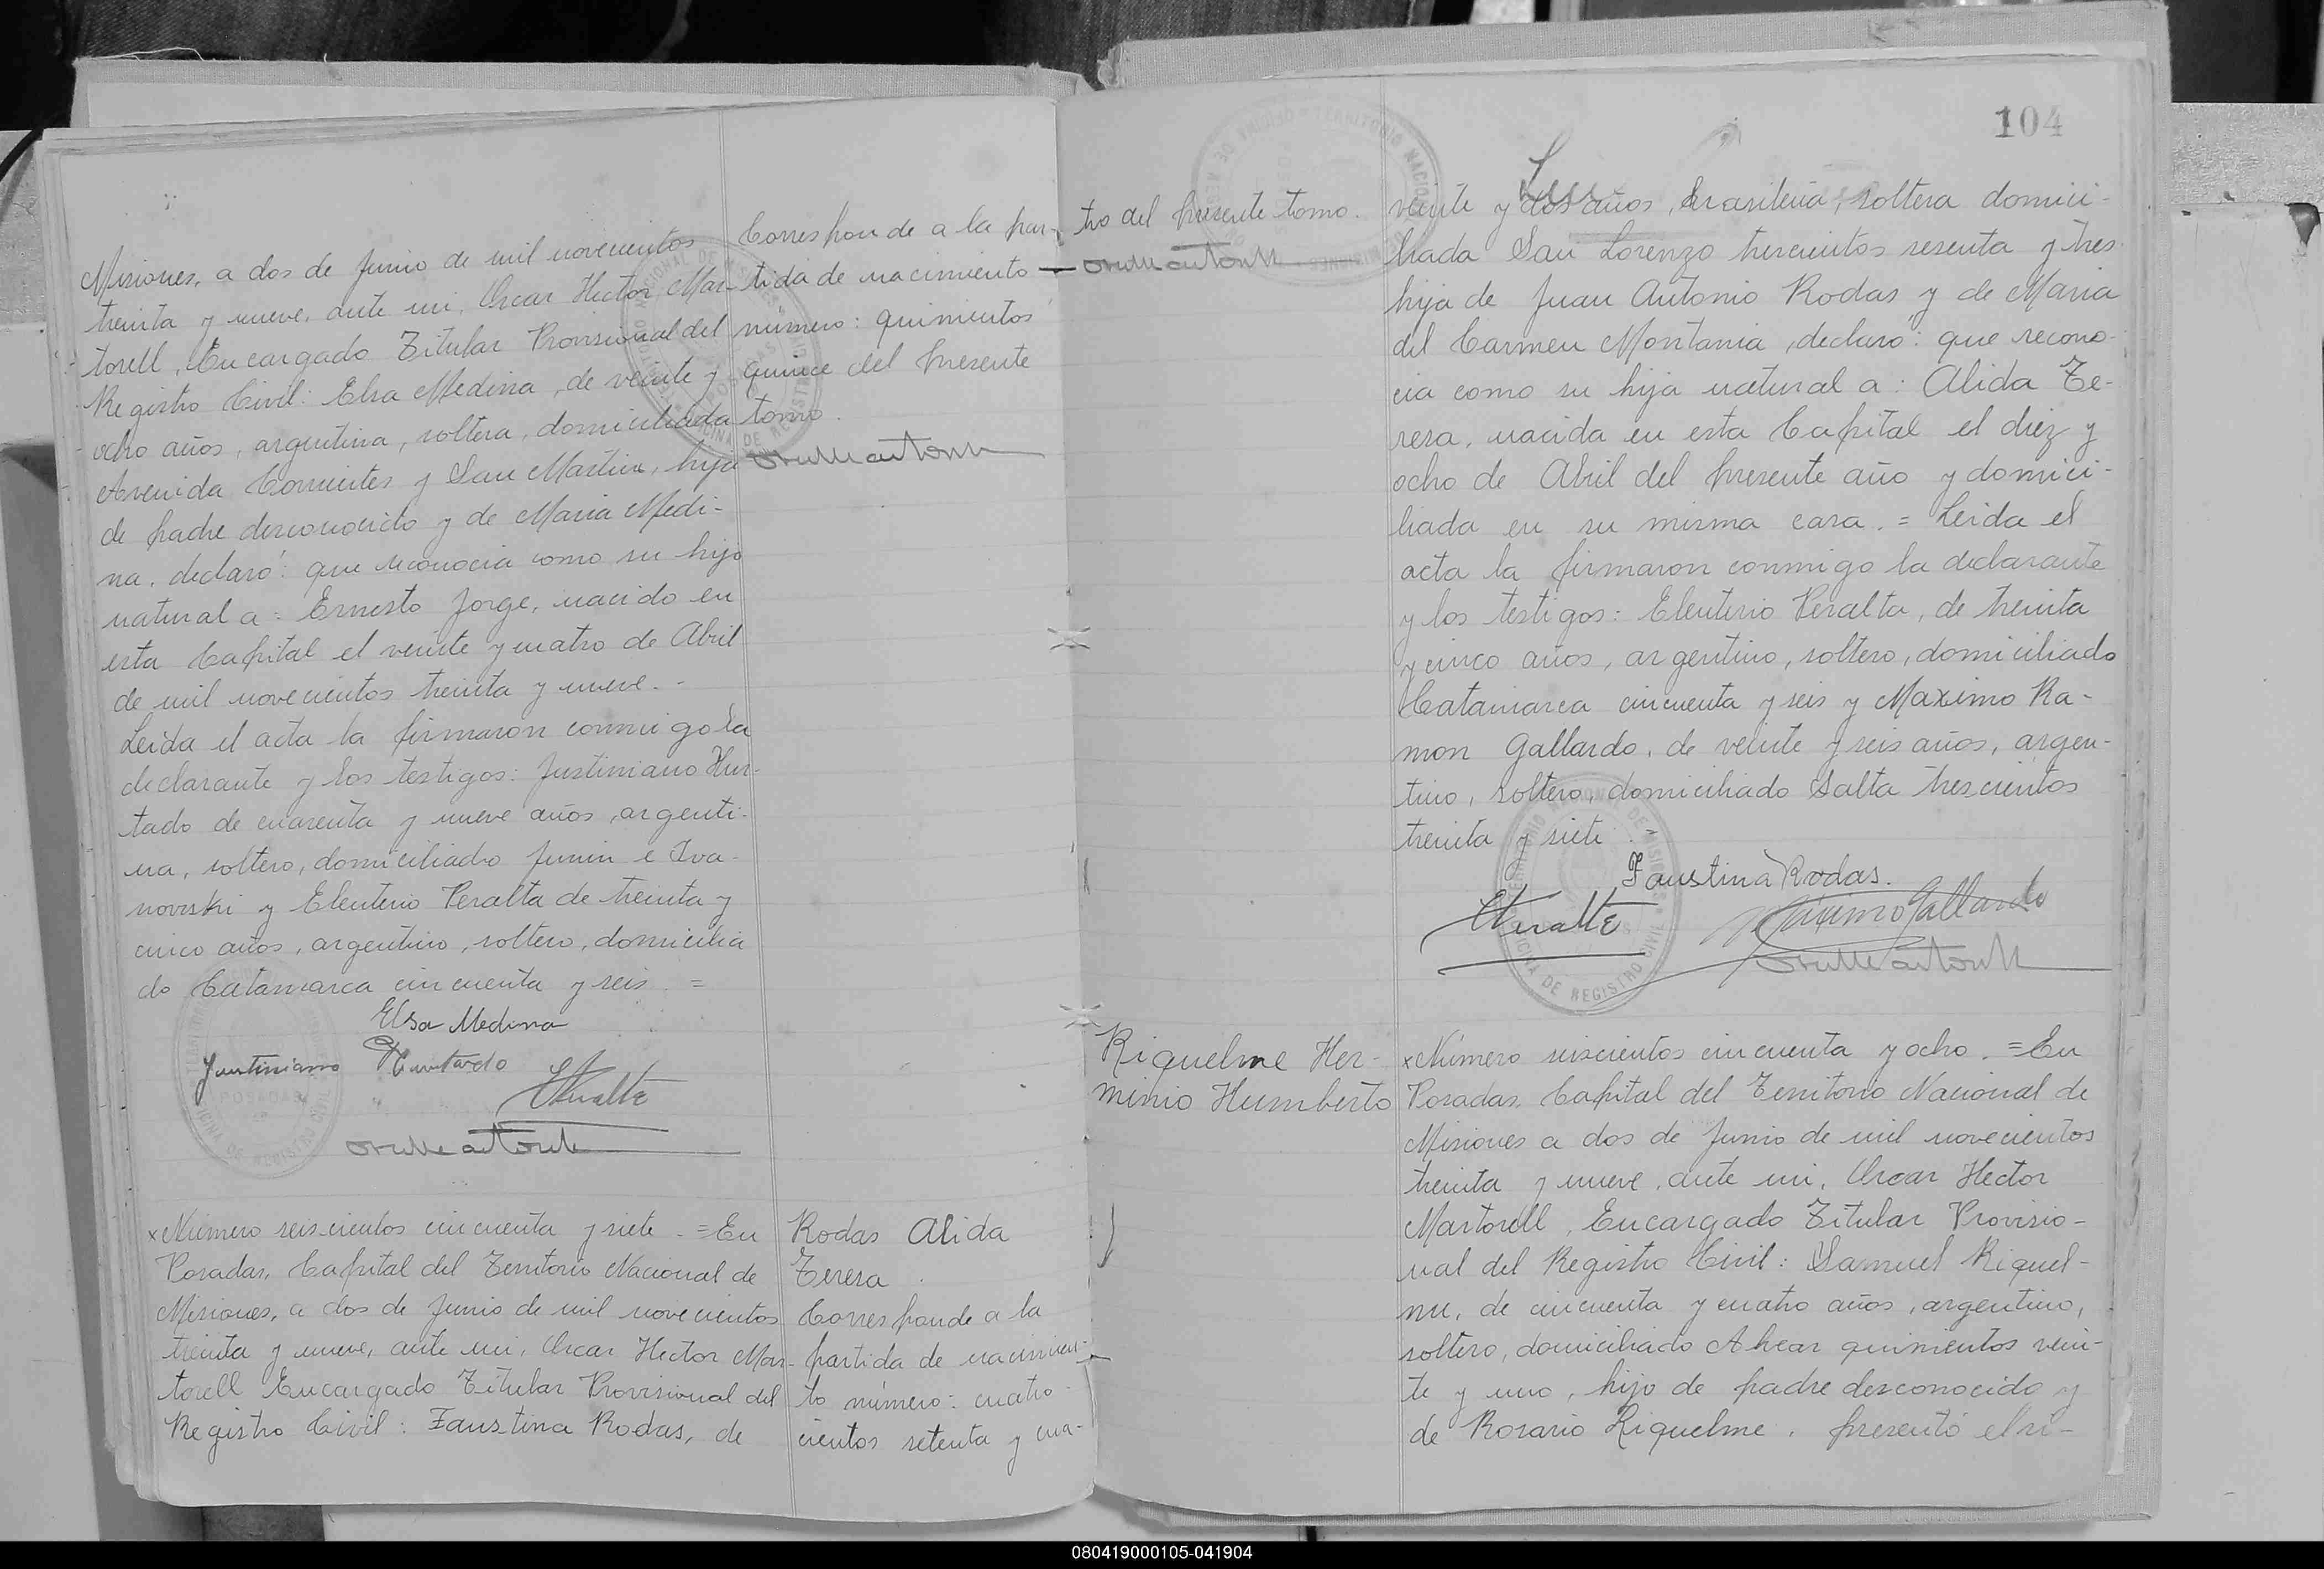 Misiones, a dos de Junio de mil novecientos
treinta y nueve, ante mi, Oscar Hector Mar-
torell, Encargado Titular Provisional del
Registro Civil: Elsa Medina, de veinte y
ocho años, argentina, soltera, domiciliada
Avenida Corrientes y San Martin, hija
de padre desconocido y de Maria Medi-
na, declaró: que reconocia como su hijo
natural a: Ernesto Jorge, nacido en
esta Capital el veinte y cuatro de Abril
de mil novecientos treinta y nueve.-
Leida el acta la firmaron conmigo la
declarante y los testigos: Justiniano Hur-
tado de cuarenta y nueve años, argenti-
na, soltero, domiciliado Junin e Iva-
novski y Eleuterio Peralta de treinta y
cinco años, argentino, soltero, domicilia
do Catamarca cincuenta y seis. =
Elsa Medina
Justiniano Hurtado
EPeralta
Corresponde a la par-
tida de nacimiento
número: quinientos
quince del presente
tomo.
×Número seiscientos cincuenta y siete.=En
Posadas, Capital del Territorio Nacional de
Misiones, a dos de Junio de mil novecientos
treinta y nueve, ante mi, Oscar Hector Mar-
torell Encargado Titular Provisional del
Registro Civil: Faustina Rodas, de
Rodas Alida
Teresa
Corresponde a la
partida de nacimien-
to número: cuatro-
cientos setenta y cua-
tro del presente tomo.
104
veinte y dos años, brasileña, soltera domici-
liada San Lorenzo trescientos sesenta y tres
hija de Juan Antonio Rodas y de Maria
del Carmen Montania, declaró: que recono-
cia como su hija natural a: Alida Te-
resa, nacida en esta Capital el diez y
ocho de Abril del presente año y domici-
liada en su misma casa. = Leida el
acta la firmaron conmigo la declarante
y los testigos: Eleuterio Peralta, de treinta
y cinco años, argentino, soltero, domiciliado
Catamarca cincuenta y seis y Maximo Ra-
mon Gallardo, de veinte y seis años, argen-
tino, soltero, domiciliado Salta trescientos
treinta y siete.
Faustina Rodas.
EPeralta
Maximo Gallardo
Riquelme Her-
minio Humberto
×Número seiscientos cincuenta y ocho.=En
Posadas, Capital del Territorio Nacional de
Misiones a dos de Junio de mil novecientos
treinta y nueve, ante mi, Oscar Hector
Martorell, Encargado Titular Provisio-
nal del Registro Civil: Samuel Riquel-
me, de cincuenta y cuatro años, argentino,
soltero, domiciliado Alvear quinientos vein-
te y uno, hijo de padre desconocido y
de Rosario Riquelme, presentó el si-
080419000105-041904